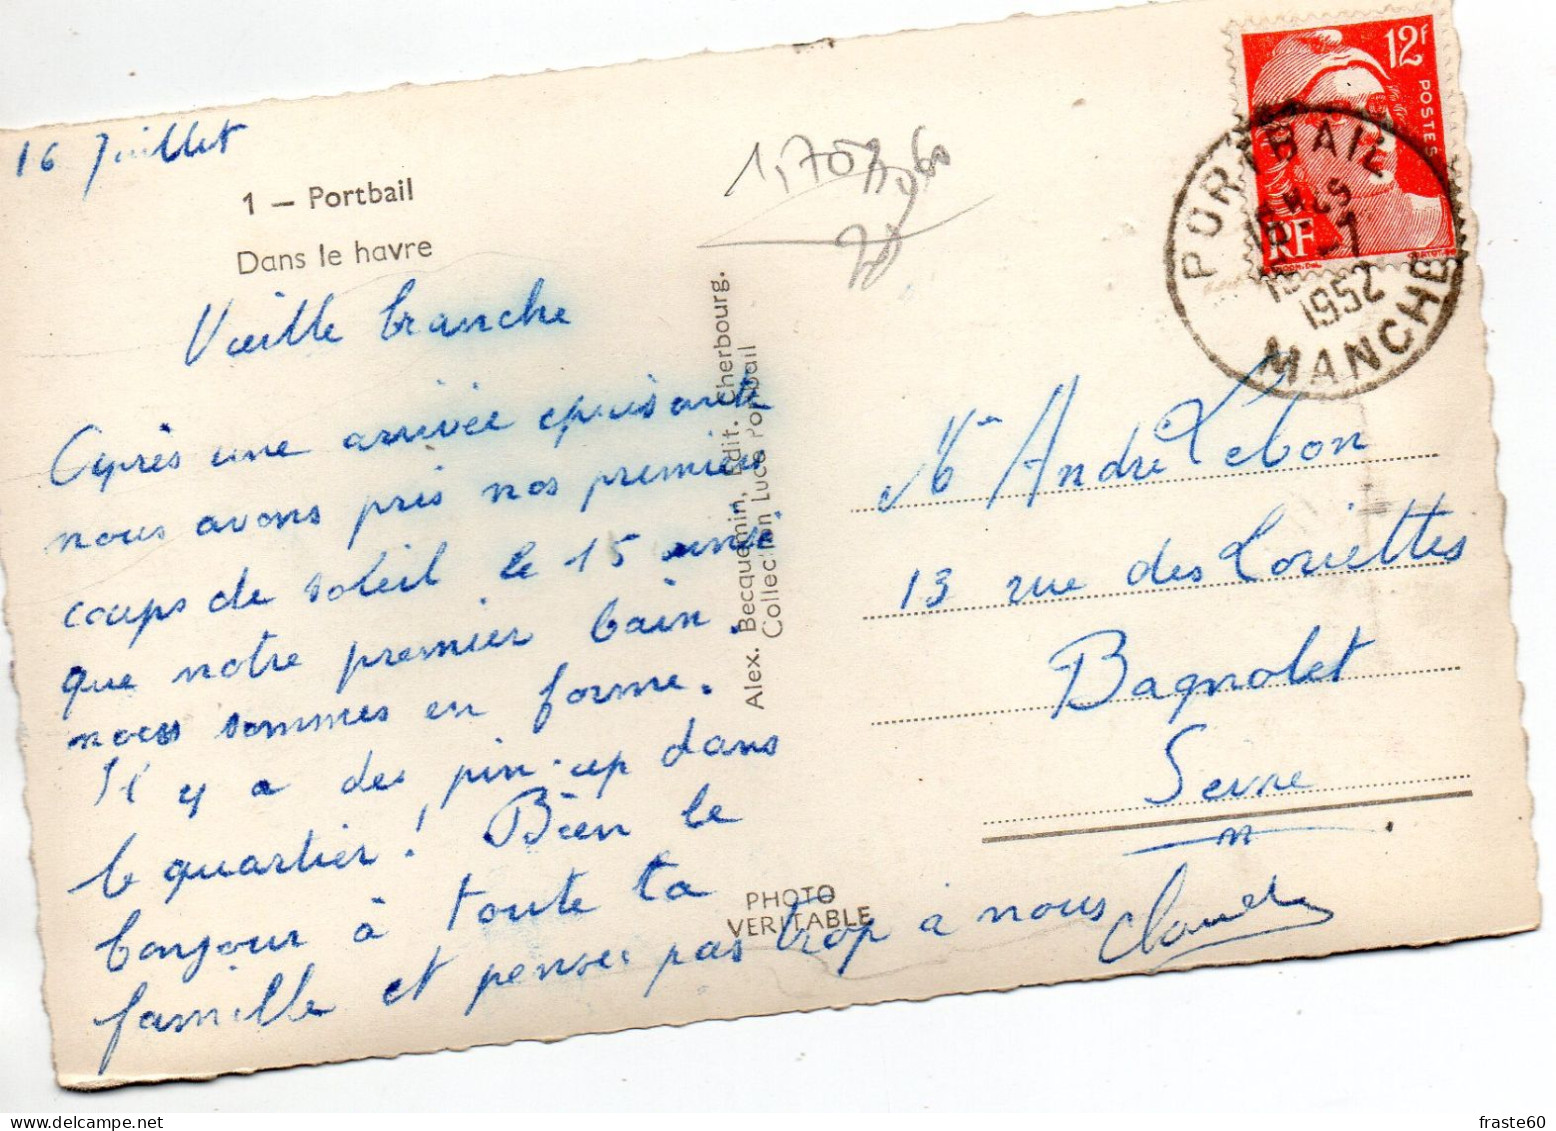 16 Juillet
1 — Portbail
Dans le havre
Vieille branche
Après une arrivée épuisante
nous avons pris nos premiers
coups de soleil le 15 ainsi
que notre premier bain.
nous sommes en forme.
Il y a des pin-up dans
le quartier! Bien le
bonjour à toute ta
famille et pensez pas trop à nous
Claude
Alex. Becquemin, Edit. Cherbourg.
Collection Luce Portbail
PHOTO
VERITABLE
12F
POSTES
RF
PORTBAIL
1952
MANCHE
Mr André Lebon
13 rue des Loriettes
Bagnolet
Seine
1,70
fraste60